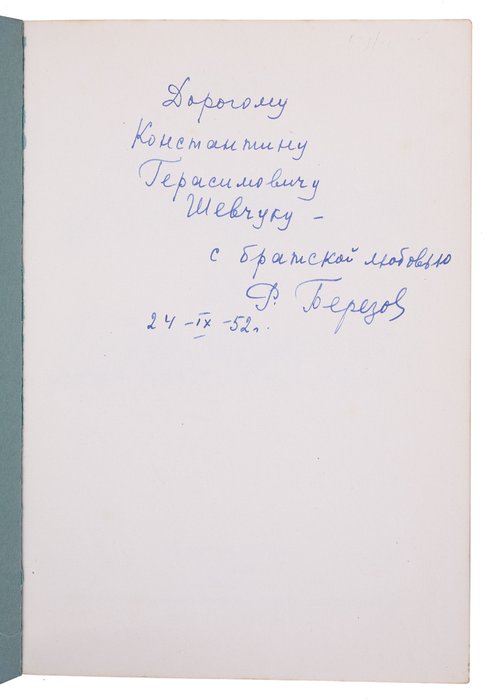 Дорогому
Константину
Герасимовичу
Шевчуку –
с братской любовью
Р. Березов
24 –IX –52г.